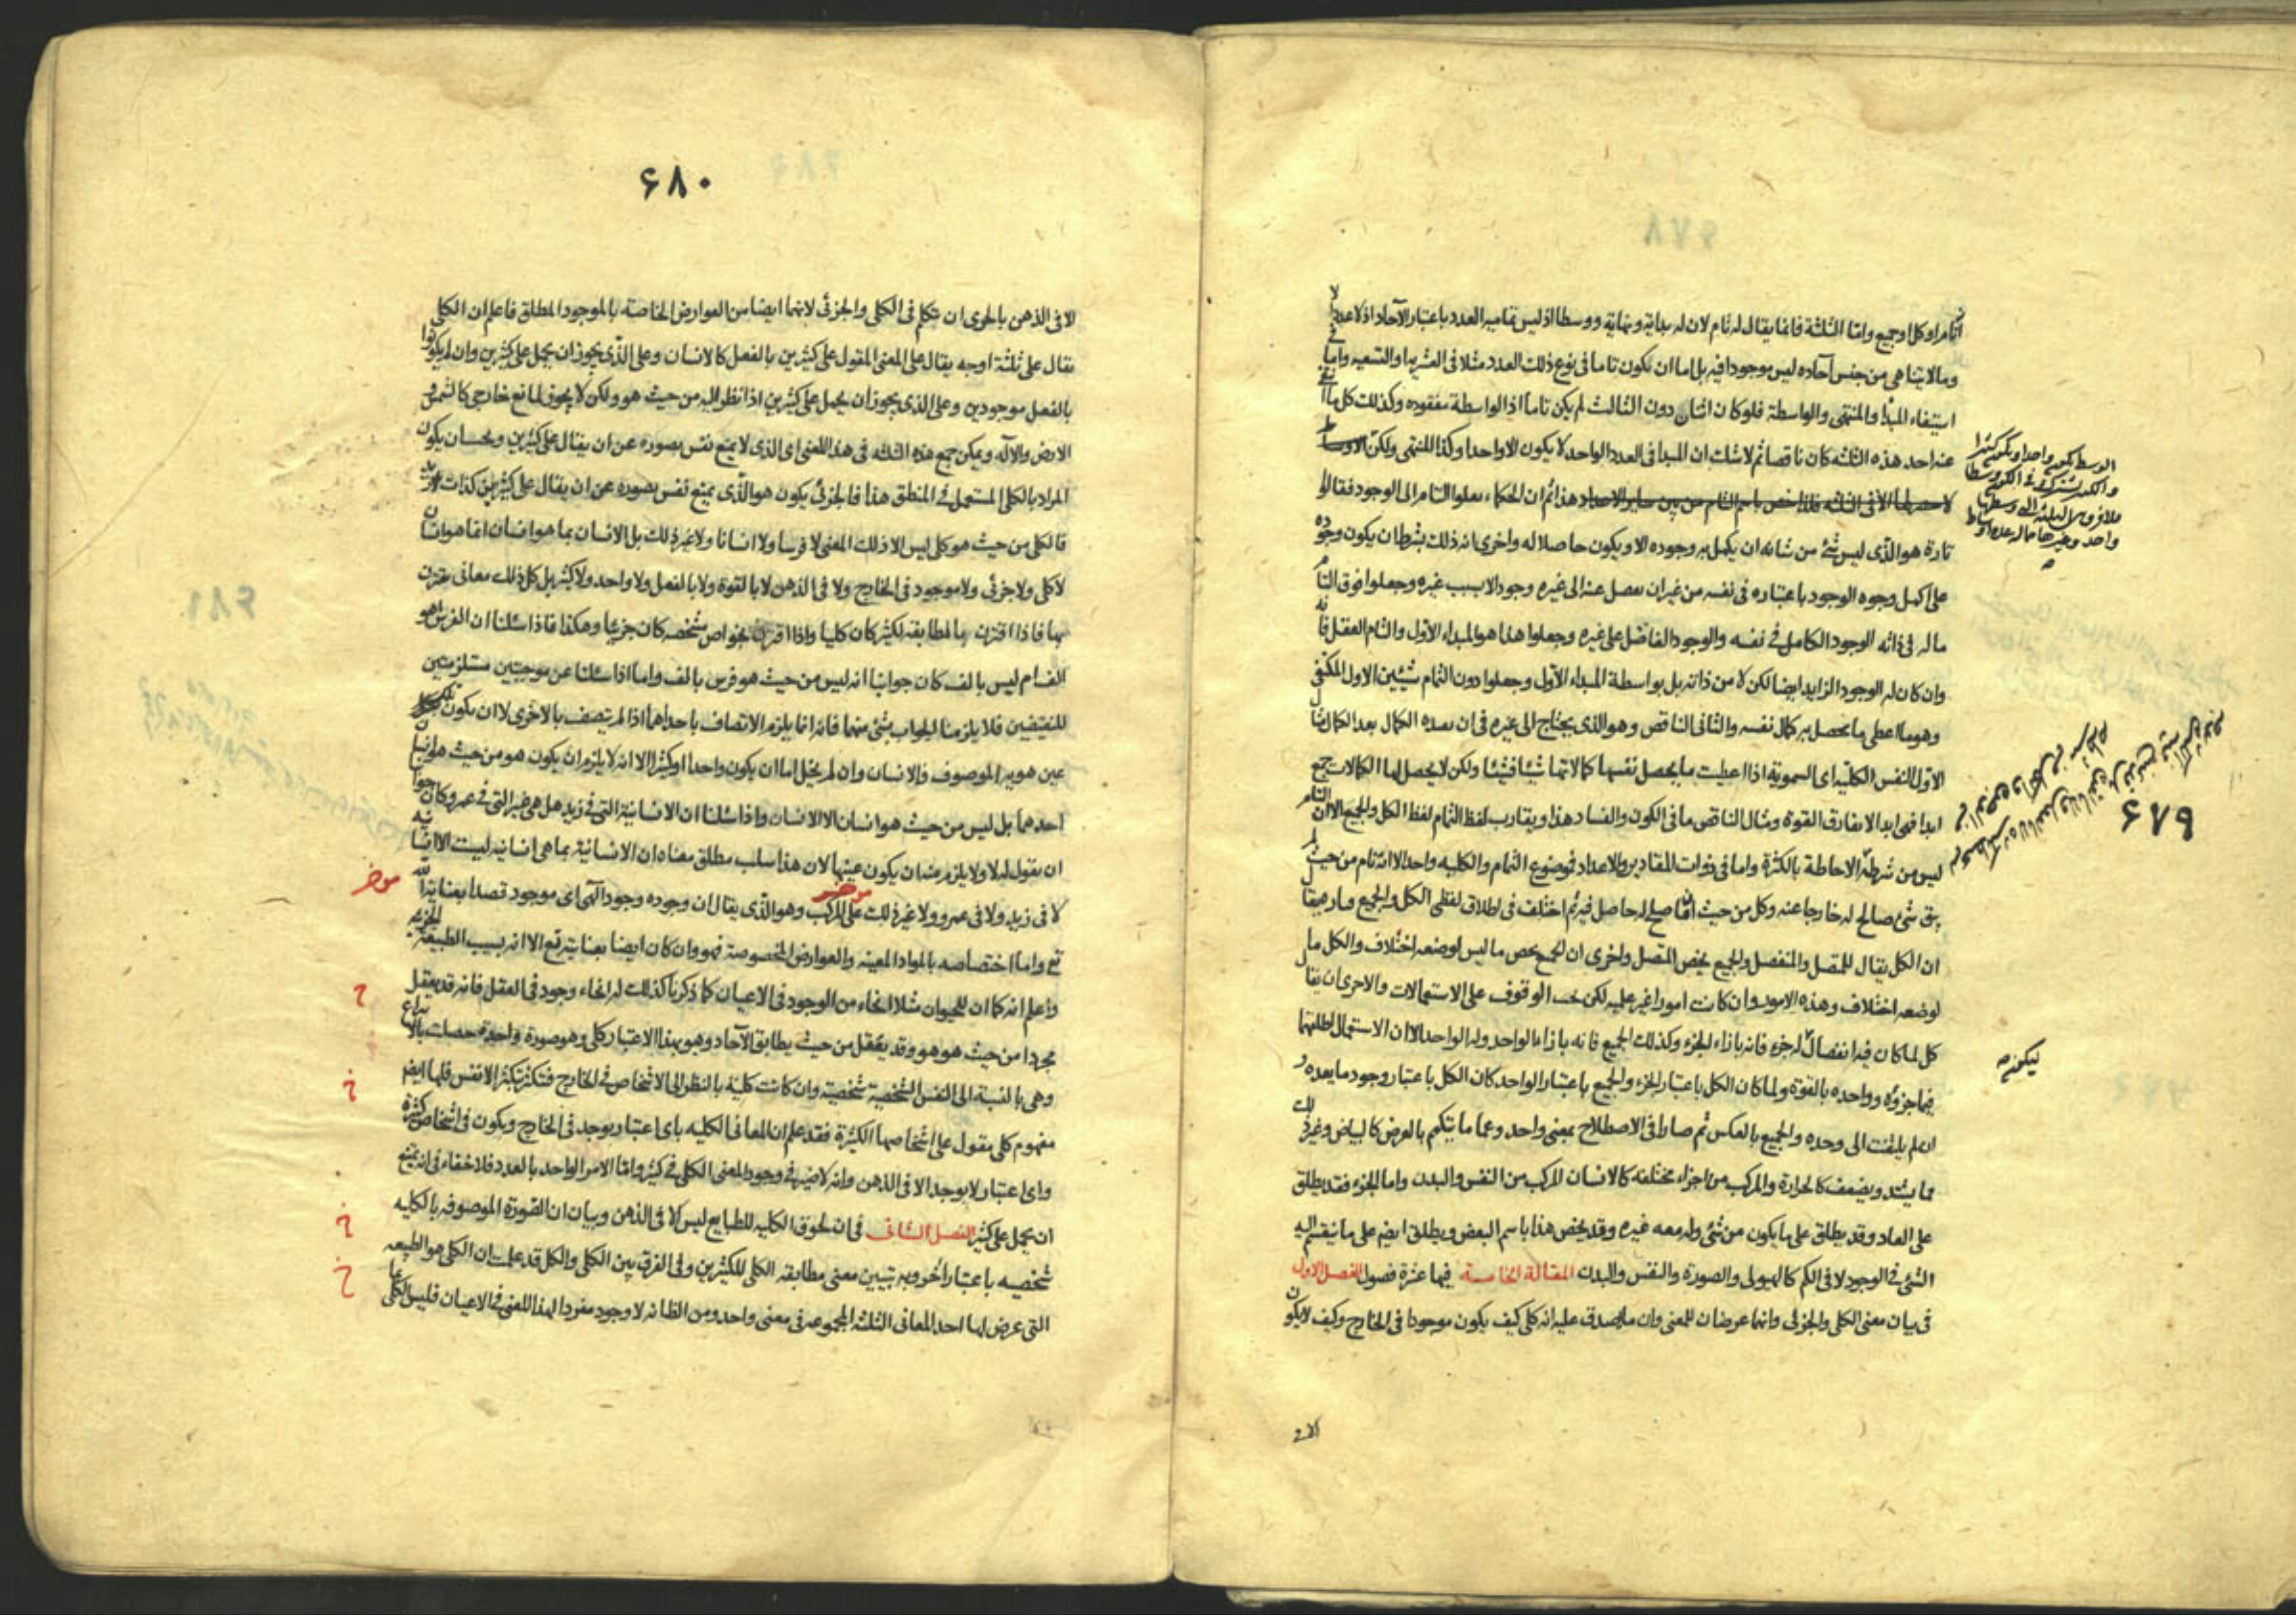 تام او كل او جميع واما الثلثة فانما يقال له تام لان له بداية ونهاية ووسطا اذ ليس تماميه العدد باعتبار الآحاد اذ لا عدد الا
وما لا يتناهى من جنس آحاده ليس موجودا فيه بل اما ان يكون تاما فى نوع ذلك العدد مثلا فى العشرية والتسعيه واما فى
استيفاء المبدا والمنتهى والواسطة فلو كان اثنان دون الثالث لم يكن تاما اذ الواسطة مفقوده وكذلك كل ما
عنه احد هذه الثلثه كان ناقصا ثم لا شك ان المبدا فى العدد الواحد لا يكون الا واحدا وكذا المنتهى ولكن الاوساط
هذا ثم ان الحكماء نقلوا التام الى الوجود فقالوا
تارة هو الذى ليس شئ من شانه ان يكمل به وجوده الا ويكون حاصلا له واخرى انه ذلك بشرط ان يكون وجوده
على اكمل وجوه الوجود باعتباره فى نفسه من غير ان يفصل عنه الى غيره وجود الا بسبب غيره وجعلوا فوق التام
ما له فى ذاته الوجود الكامل فى نفسه والوجود الفاضل على غيره وجعلوا هذا هو المبداء الاول والتام العقل فانه
وان كان له الوجود الزايد ايضا لكن لا من ذاته بل بواسطة المبداء الاول وجعلوا دون التمام شيئين الاول المكتفى
وهو ما اعطى ما يحصل به كمال نفسه والثانى الناقص وهو الذى يحتاج الى غيره فى ان يمده الكمال بعد الكمال مثال
الاول النفس الكلية اى السموية اذا اعطيت ما يحصل نفسها كمالاتها شيئا فشيئا ولكن لا يحصل لها الكمالات جميع
ابدا فهى ابدا لا تفارق القوة ومثال الناقص ما فى الكون والفساد هذا ويقارب لفظ التمام لفظ الكل والجميع الا ان التام
ليس من شرطه الاحاطة بالكثرة واما فى ذوات المقادير والاعداد فموضوع التمام والكليه واحد الا انه تام من حيث لم
يبق شئ صالح له خارجا عنه وكل من حيث ان ما صلح له حاصل فيه ثم اختلف فى اطلاق لفظى الكل والجميع
ان الكل يقال للمتصل والمنفصل والجميع يخص المنفصل واخرى ان الجميع يخص ما ليس لوضعه اختلاف والكل ما
لوضعه اختلاف وهذه الامور وان كانت امورا غير عليه لكن يجب الوقوف على الاستعمالات والاحرى ان يقال
كل لما كان فيه انفصال له جزء فانه بازاء الجزء وكذلك الجميع فانه بازاء الواحد وله الواحد الا ان الاستعمال اطلقهما
فيما جزؤه وواحده بالقوة ولما كان الكل باعتبار الجزء والجميع باعتبار الواحد كان الكل باعتبار وجود ما يعده و
ان لم يلتفت الى وحده والجميع بالعكس ثم صارا فى الاصطلاح بمعنى واحد وعما ما يتكمم بالعرض كالبياض وغير ذلك
مما يشتد ويضعف كالحرارة والمركب من اجزاء مختلفه كالانسان المركب من النفس والبدن واما الجزء فقد يطلق
على العاد وقد يطلق على ما يكون من شئ وله معه غيره وقد يخص هذا باسم البعض ويطلق ايضا على ما ينقسم اليه
الشئ فى الوجود لا فى الكم كالهيولى والصورة والنفس والبدن المقالة الخامسة فيها عشرة فصول الفصل الاول
فى بيان معنى الكلى والجزئى وانهما عرضان للمعنى وان ما يصدق عليه انه كلى كيف يكون موجودا فى الخارج وكيف لا يكون
الوسط يكون واحدا ويكون كثيرا
٦٨٩
ليكونه
الا فى
٦٨٠
الا فى الذهن بالحرى ان نتكلم فى الكلى والجزئى لانهما ايضا من العوارض الخاصة بالموجود المطلق فاعلم ان الكلى
يقال على ثلثة اوجه يقال على المعنى المقول على كثيرين بالفعل كالانسان وعلى الذى يجوز ان يحمل على كثيرين وان لم يكونوا
بالفعل موجودين وعلى الذى يجوز ان يحمل على كثيرين اذا نظر اليه من حيث هو ولكن لا يجوز لمانع خارجى كالشمس و
الارض والاله ويمكن جمع هذه الثلثه فى هذا المعنى اى الذى لا يمنع نفس تصوره عن ان يقال على كثيرين ويجب ان يكون
المراد بالكلى المستعمل فى المنطق هذا فالجزئى يكون هو الذى يمنع نفس تصوره عن ان يقال على كثيرين كذات زيد
فالكلى من حيث هو كلى ليس الا ذلك المعنى لا فرسا ولا انسانا ولا غير ذلك بل الانسان بما هو انسان انما هو انسان
لا كلى ولا جزئى ولا موجود فى الخارج ولا فى الذهن لا بالقوة ولا بالفعل ولا واحد ولا كثير بل كل ذلك معانى يقترن
بها فاذا اقترن بالمطابقه لكثير كان كليا واذا اقترن بخواص مشخصه كان جزئيا وهكذا فاذا سئلنا ان الفرس اهو
الف ام ليس بالف كان جوابنا انه ليس من حيث هو فرس بالف واما اذا سئلنا عن موجبتين مستلزمتين
للنقيضين فلا يلزمنا الجواب بشئ منهما فانه انما يلزم الاتصاف باحداهما اذا لم يتصف بالاخرى لا ان يكون تلك
عين هوية الموصوف فالانسان وان لم يخل اما ان يكون واحدا او كثيرا الا انه لا يلزم ان يكون هو من حيث هو انسان
احدهما بل ليس من حيث هو انسان الا الانسان واذا سئلنا ان الانسانية التى فى زيد هل هى غير التى فى عمرو كان جوابنا
ان يقول له لا ولا يلزم منه ان يكون عينها لان هذا سلب مطلق معناه ان الانسانية بما هى انسانيه ليست الا انسانيه
لا فى زيد ولا فى عمرو ولا غير ذلك على المركب وهو الذى يقال ان وجوده وجود الهى اى موجود قصدا بعناية الله
تع واما اختصاصه بالمواد المعينه والعوارض المخصوصة فهو وان كان ايضا بعنايته تع الا انه بسبب الطبيعة الجزئيه
واعلم انه كما ان للحيوان مثلا انحاء من الوجود فى الاعيان كما ذكرنا كذلك له انحاء وجود فى العقل فانه قد يعقل
مجردا من حيث هو هو وقد يعقل من حيث يطابق الآحاد وهو بهذا الاعتبار كلى وهو صورة واحدة حصلت
وهى بالنسبة الى النفس الشخصية شخصية وان كانت كلية بالنظر الى الاشخاص فى الخارج فتتكثر بتكثر الانفس فلها ايضا
مفهوم كلى مقول على اشخاصها الكثيرة فقد علم ان المعانى الكليه باى اعتبار يوجد فى الخارج ويكون فى اشخاص كثيرة
وباى اعتبار لا يوجد الا فى الذهن وانه لا ضير فى وجود المعنى الكلى فى كثير واما الامر الواحد بالعدد فلا خفاء فى انه يمتنع
ان يحمل على كثير الفصل الثانى فى ان لحوق الكليه للطبايع ليس الا فى الذهن وبيان ان الصورة الموصوفه بالكليه
شخصيه باعتبار آخر وبه يتبين معنى مطابقة الكلى للكثيرين وفى الفرق بين الكلى والكل قد علمت ان الكلى هو الطبيعه
التى عرض لها احد المعانى الثلثه المجموعه فى معنى واحد ومن الظا انه لا وجود مفردا لهذا المعنى فى الاعيان فليس الكلى